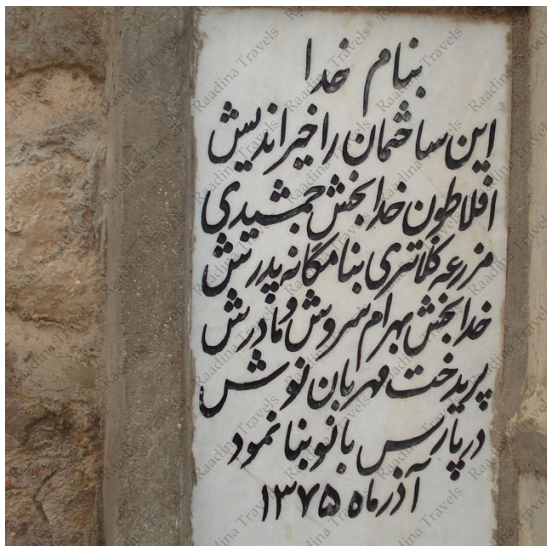 بنام خدا
این ساختمان را خیراندیش
افلاطون خدابخش جمشیدی
مزرعه کلانتری بنامگانه پدرش
خدابخش بهرام سروش و مادرش
پریدخت مهربان نوش
در پارس بانو بنا نمود
آذرماه ۱۳۷۵
Raadina Travels